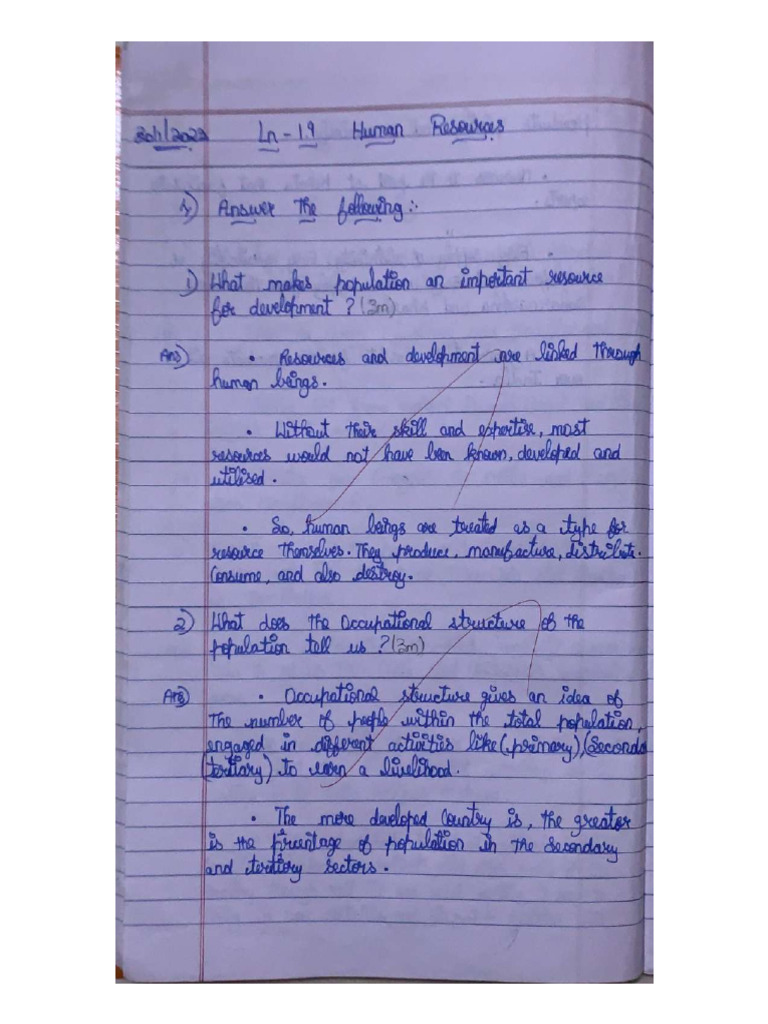 Ln - 19 Human Resources
I) Answer the following :-
1) What makes population an important resource
for development ? (3m)
Ans) • Resources and development are linked through
human beings.
• Without their skill and expertise, most
resources would not have been known, developed and
utilised.
• So, human beings are treated as a type for
resource themselves. They produce, manufacture, distribute.
Consume, and also destroy.
2) What does the Occupational structure of the
population tell us ? (3m)
Ans) • Occupational structure gives an idea of
The number of people within the total population,
engaged in different activities like (primary), (Seconda
(tertiary) to earn a livelihood.
• The more developed Country is, the greater
is the percentage of population in the Secondary
and tertiary sectors.